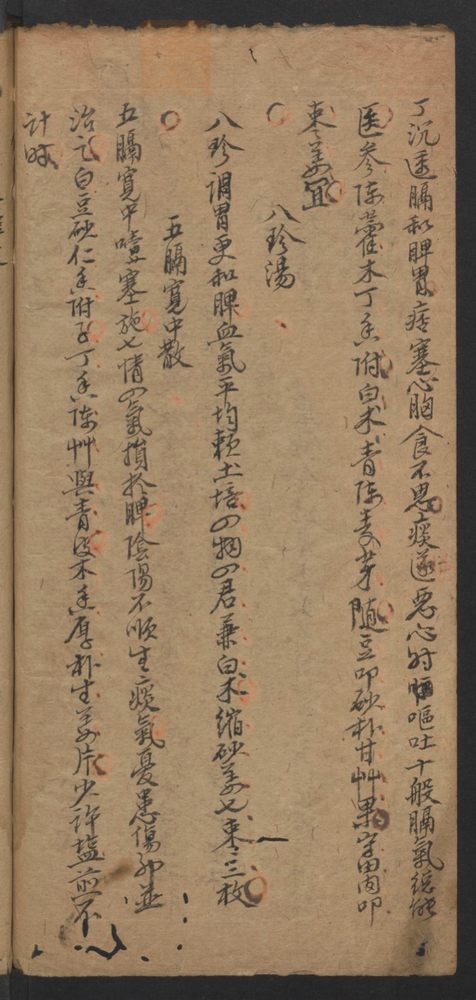 丁沉透膈和脾胃痞塞心胸食不思痰逆恶心時嘔吐十般膈氣総能
医參陈藿木丁香附白术青陈麦芽随豆叩砂朴甘艸果字肉叩
枣姜宜
八珍湯
八珍調胃更和脾血氣平均赖土培四物四君兼白术缩砂姜七枣三枚
五膈寛中散
五膈寛中噎塞施七情四氣損於脾陰陽不順生痰氣憂恚傷邪並
治之白豆砂仁香附子丁香陈艸與青皮木香厚朴生姜片少許塩煎不
計時